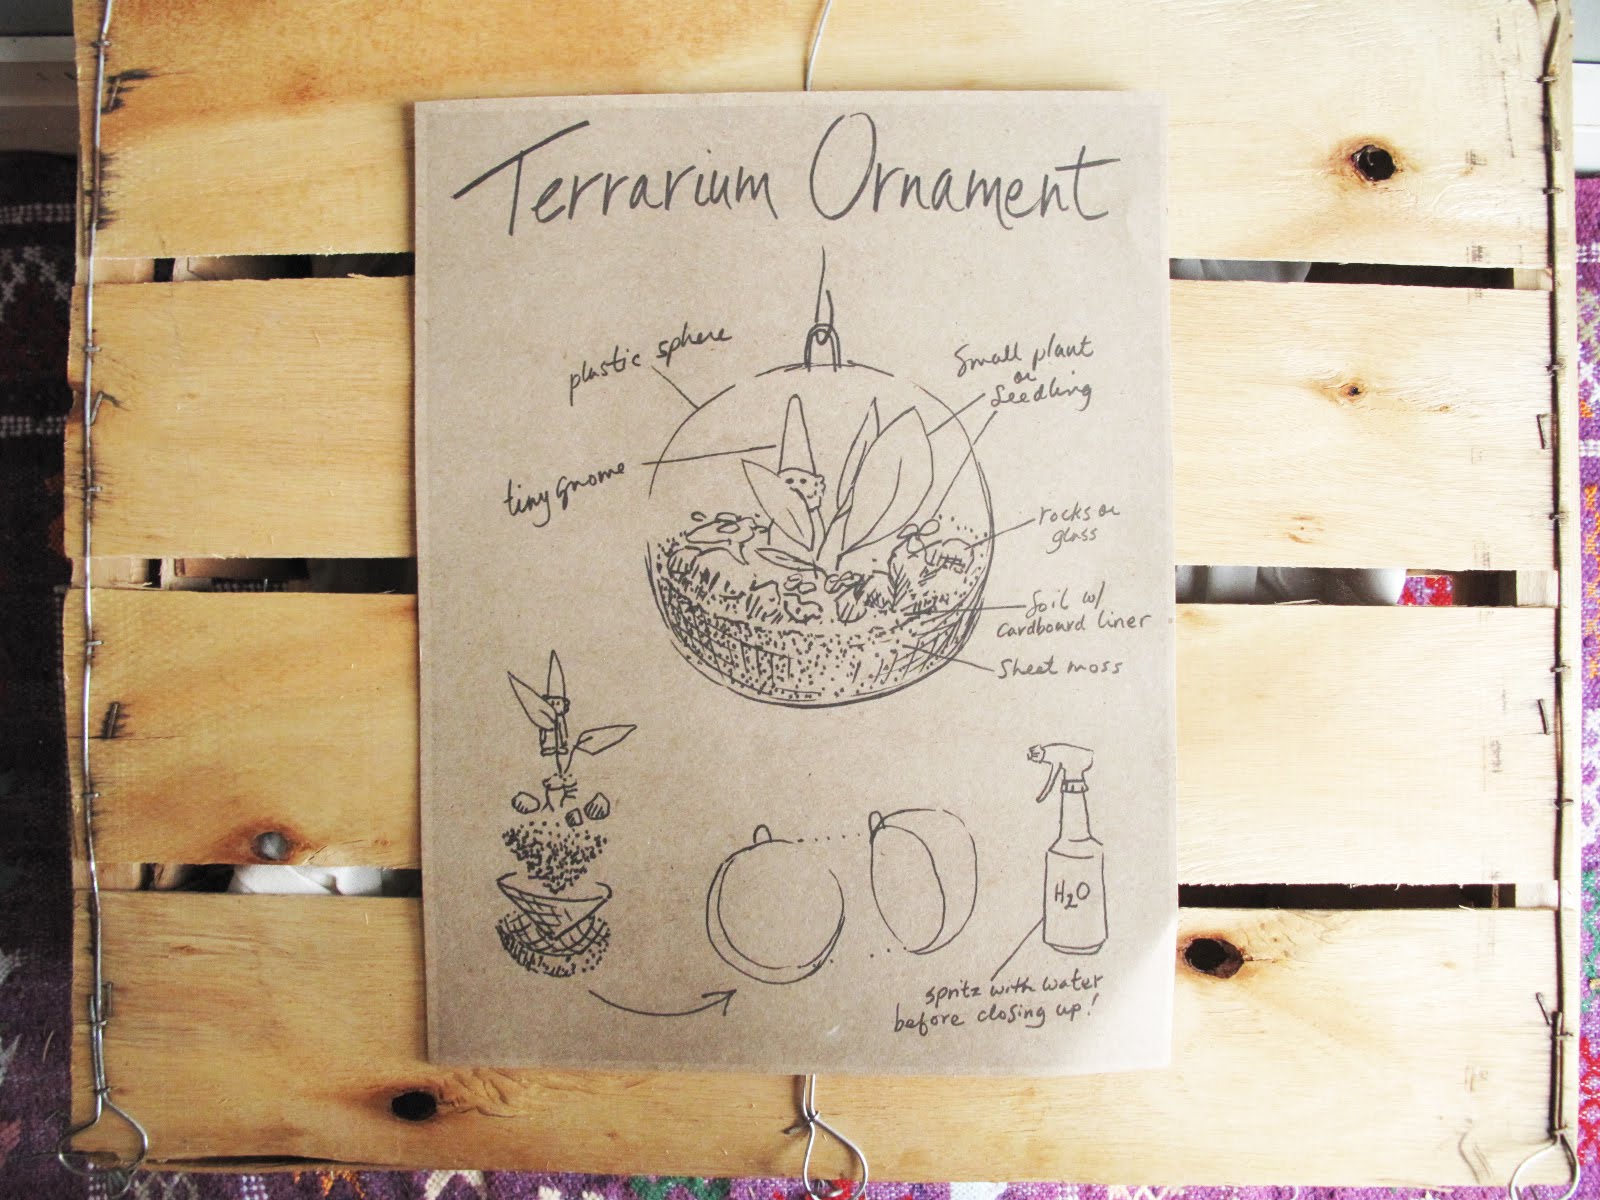 Terrarium Ornament
plastic sphere
Small plant
or
Seedling
tiny gnome
rocks or
glass
Soil w/
Cardboard liner
Sheet moss
H2O
spritz with water
before closing up!